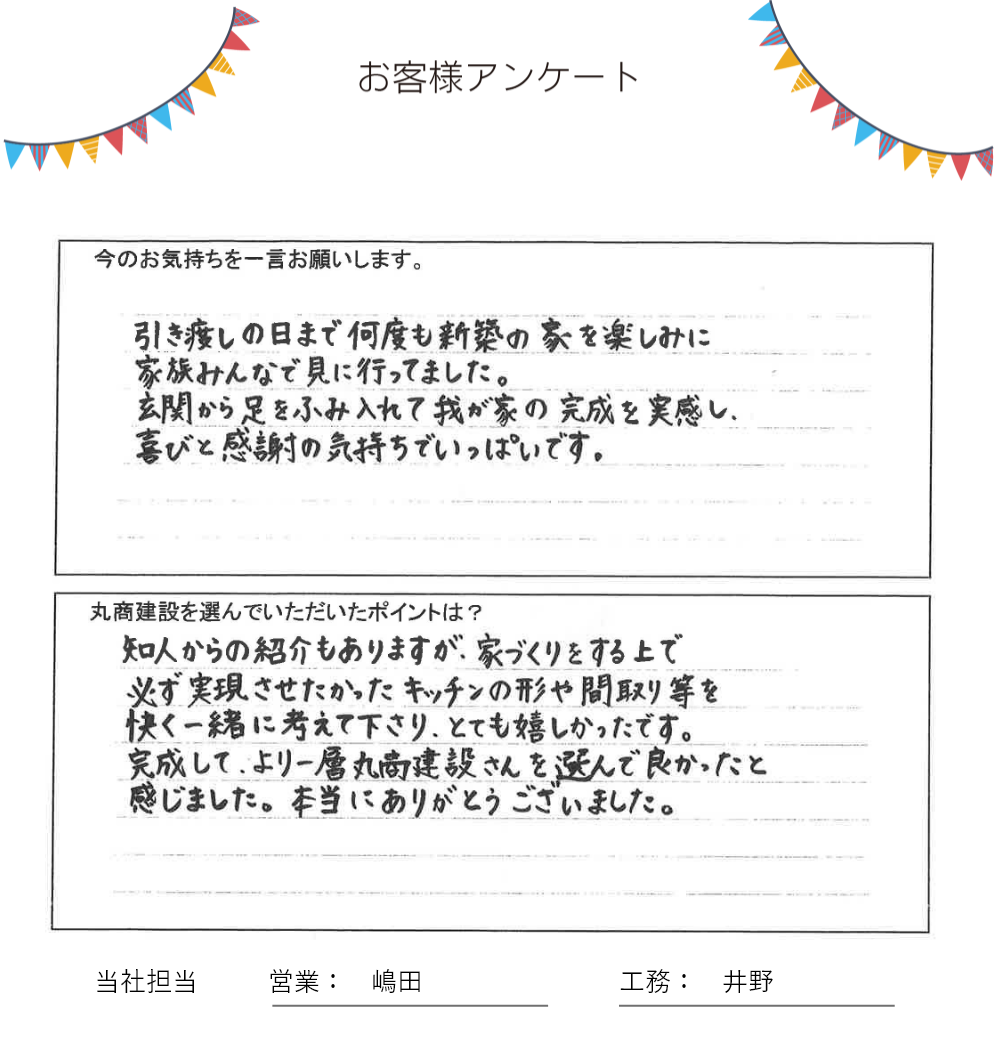 お客様アンケート
今のお気持ちを一言お願いします。
引き渡しの日まで何度も新築の家を楽しみに
家族みんなで見に行ってました。
玄関から足をふみ入れて我が家の完成を実感し、
喜びと感謝の気持ちでいっぱいです。
丸商建設を選んでいただいたポイントは？
知人からの紹介もありますが、家づくりをする上で
必ず実現させたかったキッチンの形や間取り等を
快く一緒に考えて下さり、とても嬉しかったです。
完成して、より一層丸商建設さんを選んで良かったと
感じました。本当にありがとうございました。
当社担当 営業： 嶋田 工務： 井野